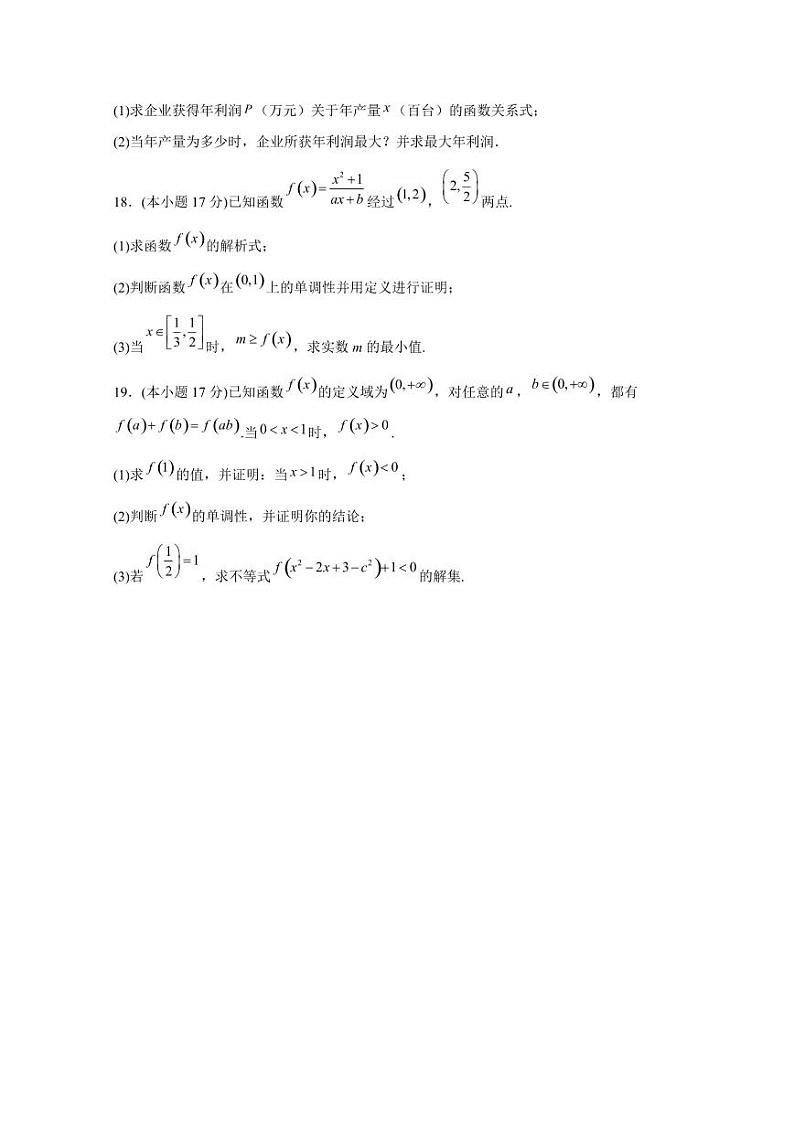 (1)求企业获得年利润P（万元）关于年产量x（百台）的函数关系式；
(2)当年产量为多少时，企业所获年利润最大？并求最大年利润．
18．(本小题 17 分)已知函数 f(x)=\frac{x^2+1}{ax+b} 经过(1,2)，(2,\frac{5}{2})两点.
(1)求函数f(x)的解析式；
(2)判断函数f(x)在(0,1)上的单调性并用定义进行证明；
(3)当x∈[\frac{1}{3},\frac{1}{2}]时，m≥f(x)，求实数 m 的最小值.
19．(本小题 17 分)已知函数f(x)的定义域为(0,+∞)，对任意的a，b∈(0,+∞)，都有
f(a)+f(b)=f(ab).当0<x<1时，f(x)>0.
(1)求f(1)的值，并证明：当x>1时，f(x)<0；
(2)判断f(x)的单调性，并证明你的结论；
(3)若f(\frac{1}{2})=1，求不等式f(x^2-2x+3-c^2)+1<0的解集.